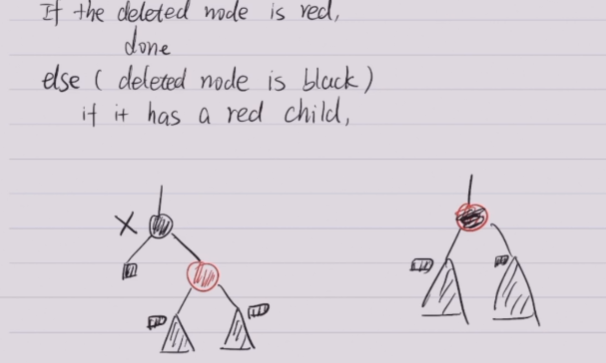 If the deleted node is red,
done
else ( deleted node is black )
if it has a red child,
X